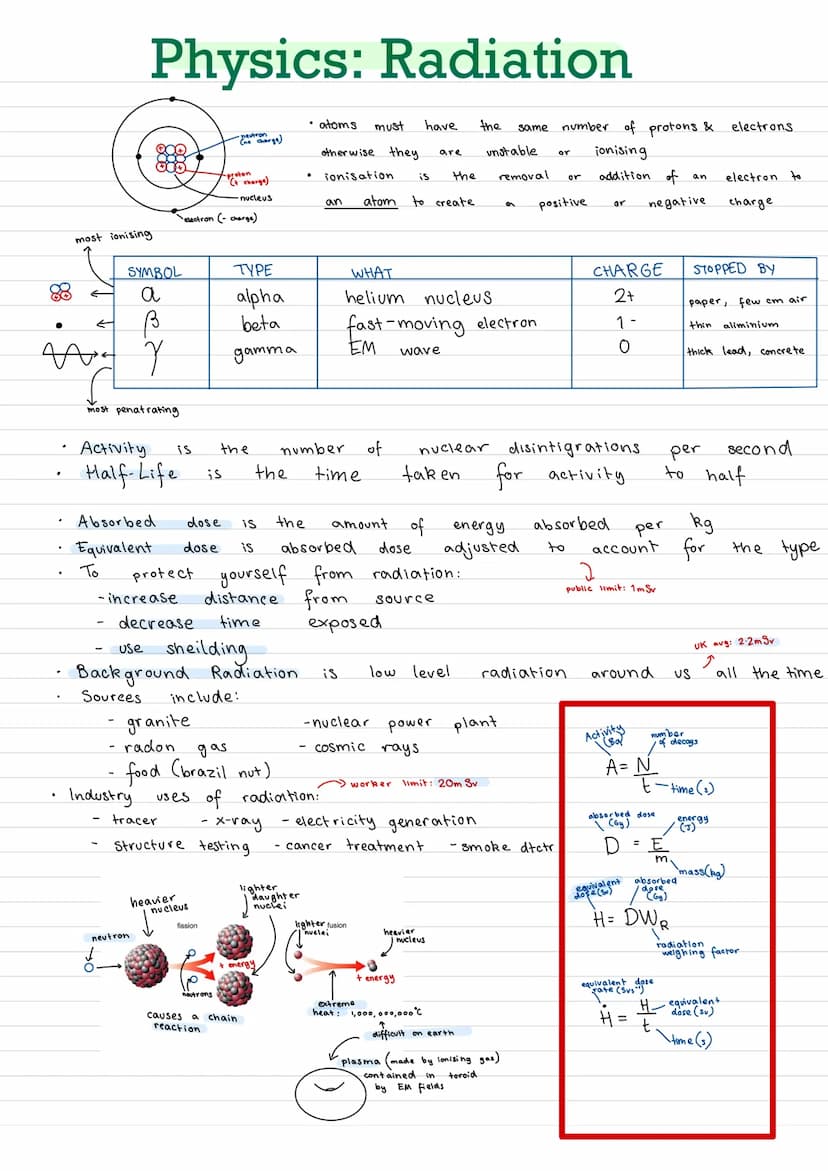 Physics: Radiation
neutron
(no charge)
proton
(+ charge)
nucleus
electron (- charge)
• atoms must have the same number of protons & electrons
otherwise they are unstable or ionising
• ionisation is the removal or addition of an electron to
an atom to create a positive or negative charge
most ionising
SYMBOL TYPE WHAT CHARGE STOPPED BY
α alpha helium nucleus 2+ paper, few cm air
β beta fast-moving electron 1- thin aliminium
γ gamma EM wave 0 thick lead, concrete
most penatrating
• Activity is the number of nuclear disintigrations per second
• Half-Life is the time taken for activity to half
• Absorbed dose is the amount of energy absorbed per kg
• Equivalent dose is absorbed dose adjusted to account for the type
• To protect yourself from radiation:
public limit: 1mSv
-increase distance from source
- decrease time exposed
- use sheilding
UK avg: 2.2mSv
• Background Radiation is low level radiation around us all the time
• Sources include:
- granite -nuclear power plant
- radon gas - cosmic rays
- food (brazil nut)
• Industry uses of radiation:
worker limit: 20mSv
- tracer - x-ray - electricity generation
- structure testing - cancer treatment - smoke dtctr
Activity
(Bq)
number
of decays
A = N
t
time(s)
absorbed dose
(Gy)
energy
(J)
D = E
m
mass(kg)
equivalent
dose(Sv)
absorbed
dose
(Gy)
H = DWR
radiation
weighing factor
equivalent dose
rate (Svs⁻¹)
Ḣ = H
t
equivalent
dose (Sv)
time(s)
heavier
nucleus
neutron
fission
lighter
daughter
nuclei
+ energy
neutrons
causes a chain
reaction
lighter
nuclei
fusion
heavier
nucleus
+ energy
extreme
heat: 1,000,000,000°C
difficult on earth
plasma (made by ionising gas)
contained in toroid
by EM fields